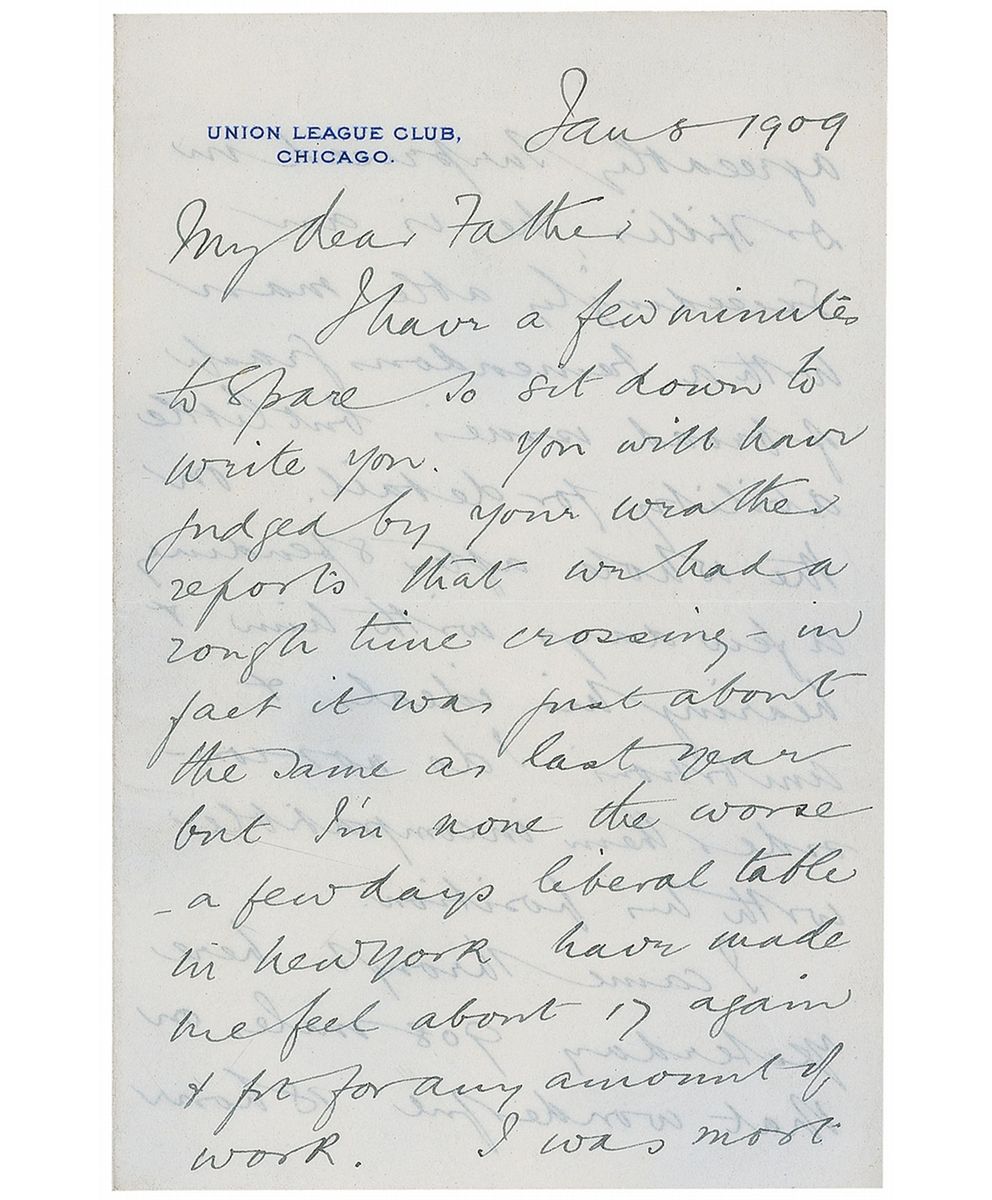 UNION LEAGUE CLUB,
CHICAGO.
Jan 8 1909
My dear Father
I have a few minutes
to spare so sit down to
write you. You will have
judged by your weather
reports that we had a
rough time crossing - in
fact it was just about
the same as last year
but I'm none the worse
- a few days liberal table
in New York have made
me feel about 17 again
& fit for any amount of
work. I was most